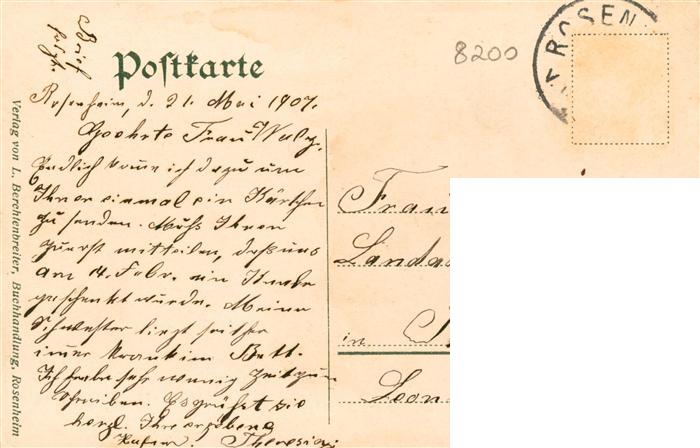 Brief folgt.
Postkarte
8200
ROSEN
Rosenheim, d. 21. Mai 1907.
Geehrte Frau
Endlich komme ich dazu um
Ihnen einmal ein Kärtchen
zu senden. Muß Ihnen
zuerst mitteilen, daß uns
am 4. Febr. ein Knabe
geschenkt wurde. Meine
Schwester liegt seither
immer krank im Bett.
Ich habe sehr wenig Zeit zum
Schreiben. Es grüßt Sie
herzl. Ihre ergebene
Theresia
Frau
in
Leon
Verlag von L. Berchtenbreiter, Buchhandlung, Rosenheim